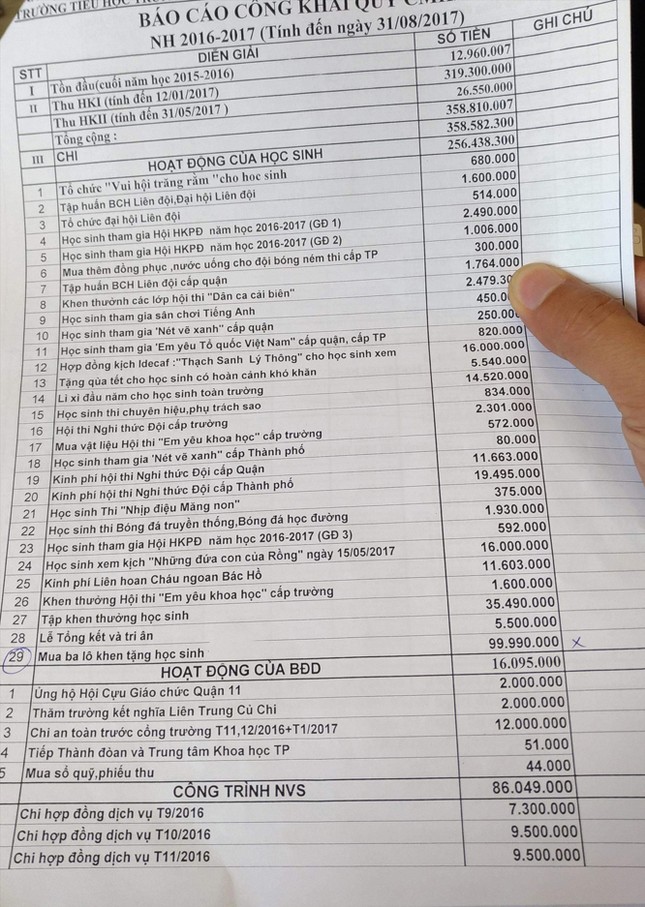 TRƯỜNG TIỂU HỌC
BÁO CÁO CÔNG KHAI QUỸ
NH 2016-2017 (Tính đến ngày 31/08/2017)
STT DIỄN GIẢI SỐ TIỀN GHI CHÚ
I Tồn đầu(cuối năm học 2015-2016) 12.960.007
II Thu HKI (tính đến 12/01/2017) 319.300.000
Thu HKII (tính đến 31/05/2017 ) 26.550.000
Tổng cộng : 358.810.007
III CHI 358.582.300
HOẠT ĐỘNG CỦA HỌC SINH 256.438.300
1 Tổ chức "Vui hội trăng rằm "cho học sinh 680.000
2 Tập huấn BCH Liên đội,Đại hội Liên đội 1.600.000
3 Tổ chức đại hội Liên đội 514.000
4 Học sinh tham gia Hội HKPĐ năm học 2016-2017 (GĐ 1) 2.490.000
5 Học sinh tham gia Hội HKPĐ năm học 2016-2017 (GĐ 2) 1.006.000
6 Mua thêm đồng phục ,nước uống cho đội bóng ném thi cấp TP 300.000
7 Tập huấn BCH Liên đội cấp quận 1.764.000
8 Khen thưởnh các lớp hội thi "Dân ca cải biên" 2.479.30
9 Học sinh tham gia sân chơi Tiếng Anh 450.00
10 Học sinh tham gia 'Nét vẽ xanh" cấp quận 250.00
11 Học sinh tham gia 'Em yêu Tổ quốc Việt Nam" cấp quận, cấp TP 820.000
12 Hợp đồng kịch Idecaf :"Thạch Sanh Lý Thông" cho học sinh xem 16.000.000
13 Tặng qùa tết cho học sinh có hoàn cảnh khó khăn 5.540.000
14 Lì xì đầu năm cho học sinh toàn trường 14.520.000
15 Học sinh thi chuyên hiệu,phụ trách sao 834.000
16 Hội thi Nghi thức Đội cấp trường 2.301.000
17 Mua vật liệu Hội thi "Em yêu khoa học" cấp trường 572.000
18 Học sinh tham gia 'Nét vẽ xanh" cấp Thành phố 80.000
19 Kinh phí hội thi Nghi thức Đội cấp Quận 11.663.000
20 Kinh phí hội thi Nghi thức Đội cấp Thành phố 19.495.000
21 Học sinh Thi "Nhịp điệu Măng non" 375.000
22 Học sinh thi Bóng đá truyền thống,Bóng đá học đường 1.930.000
23 Học sinh tham gia Hội HKPĐ năm học 2016-2017 (GĐ 3) 592.000
24 Học sinh xem kịch "Những đứa con của Rồng" ngày 15/05/2017 16.000.000
25 Kinh phí Liên hoan Cháu ngoan Bác Hồ 11.603.000
26 Khen thưởng Hội thi "Em yêu khoa học" cấp trường 1.600.000
27 Tập khen thưởng học sinh 35.490.000
28 Lễ Tổng kết và tri ân 5.500.000
29 Mua ba lô khen tặng học sinh 99.990.000 x
HOẠT ĐỘNG CỦA BĐD 16.095.000
1 Ủng hộ Hội Cựu Giáo chức Quận 11 2.000.000
2 Thăm trường kết nghĩa Liên Trung Củ Chi 2.000.000
3 Chi an toàn trước cổng trường T11,12/2016+T1/2017 12.000.000
4 Tiếp Thành đòan và Trung tâm Khoa học TP 51.000
5 Mua sổ quỹ,phiếu thu 44.000
CÔNG TRÌNH NVS 86.049.000
Chi hợp đồng dịch vụ T9/2016 7.300.000
Chi hợp đồng dịch vụ T10/2016 9.500.000
Chi hợp đồng dịch vụ T11/2016 9.500.000